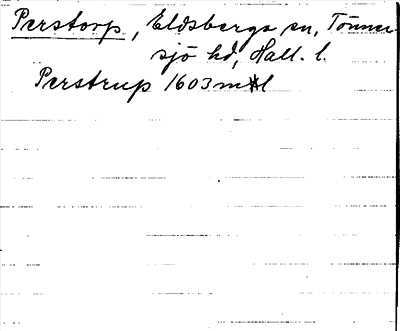 Perstorp, Eldsberga sn, Tönner-
sjö hd, Hall. l.
Perstrup 1603 m*l